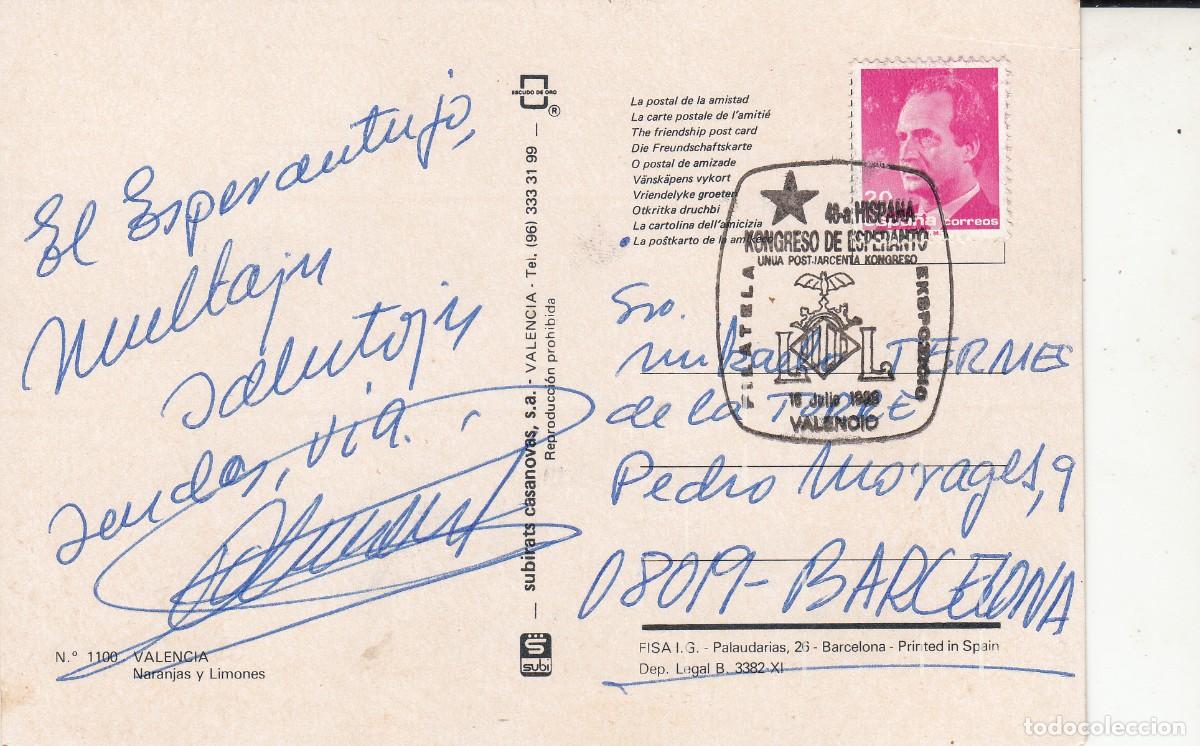 El Esperantujo,
multajn
salutojn
sendas, via.
ESCUDO DE ORO
®
subirats casanovas, s.a. - VALENCIA - Tel. (96) 333 31 99
Reproducción prohibida
subi
N.º 1100 - VALENCIA
Naranjas y Limones
La postal de la amistad
La carte postale de l'amitié
The friendship post card
Die Freundschaftskarte
O postal de amizade
Vänskäpens vykort
Vriendelyke groeten
Otkritka druchbi
La cartolina dell'amicizia
La poŝtkarto de la amikeco
20
España correos
48-a HISPANA
KONGRESO DE ESPERANTO
UNUA POST-JARCENTA KONGRESO
FILATELA
EKSPOZICIO
L L
16 Julio 1988
VALENCIO
Sro.
TERMES
de la TORRE
Pedro Morages, 9
08019 - BARCELONA
FISA I.G. - Palaudarias, 26 - Barcelona - Printed in Spain
Dep. Legal B. 3382-XI
todocoleccion